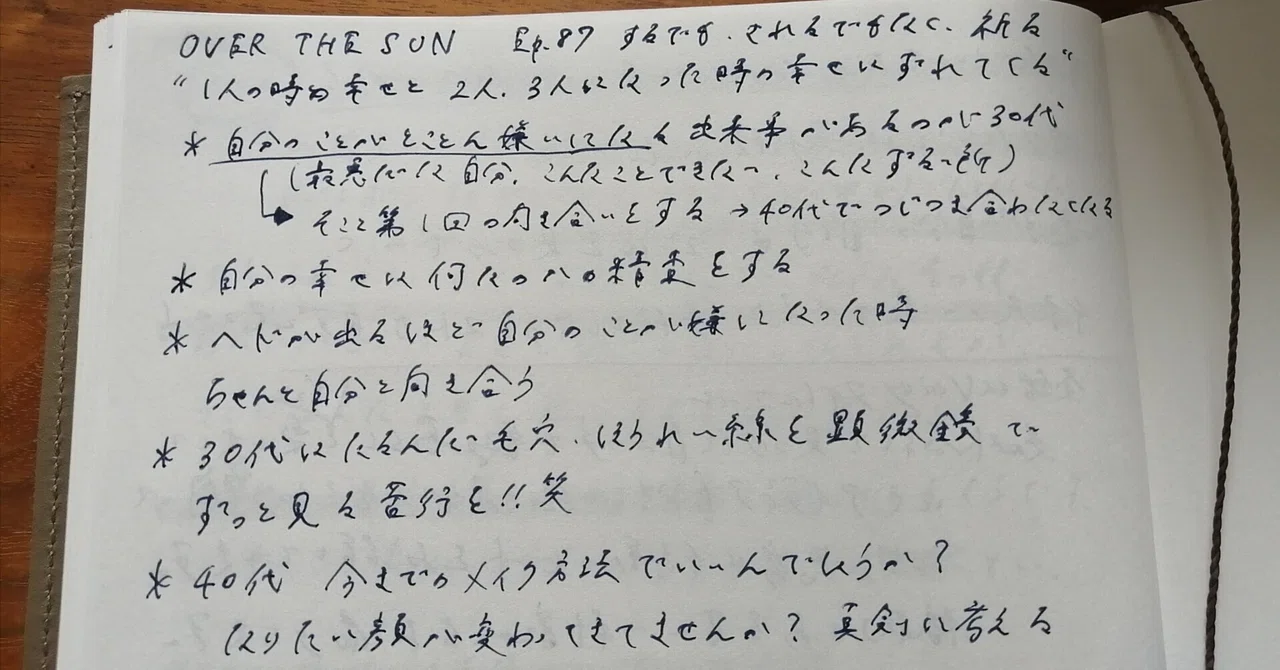 OVER THE SUN Ep.87 するでも、されるでもなく、祈る
"1人の時の幸せと 2人、3人になった時の幸せはずれてくる"
* 自分のことがとことん嫌いになる出来事があるのが30代
(最悪だな自分、こんなことできない、こんなする所)
そこと第1回の向き合いをする → 40代でつじつま合わなくなる
* 自分の幸せは何なのかの精査をする
* ヘドが出るほど自分のことが嫌いになった時
ちゃんと自分と向き合う
* 30代はたるんだ毛穴、ほうれい線を顕微鏡で
ずっと見る苦行を!!笑
* 40代 今までのメイク方法でいいんでしょうか?
なりたい顔が変わってきてませんか? 真剣に考える